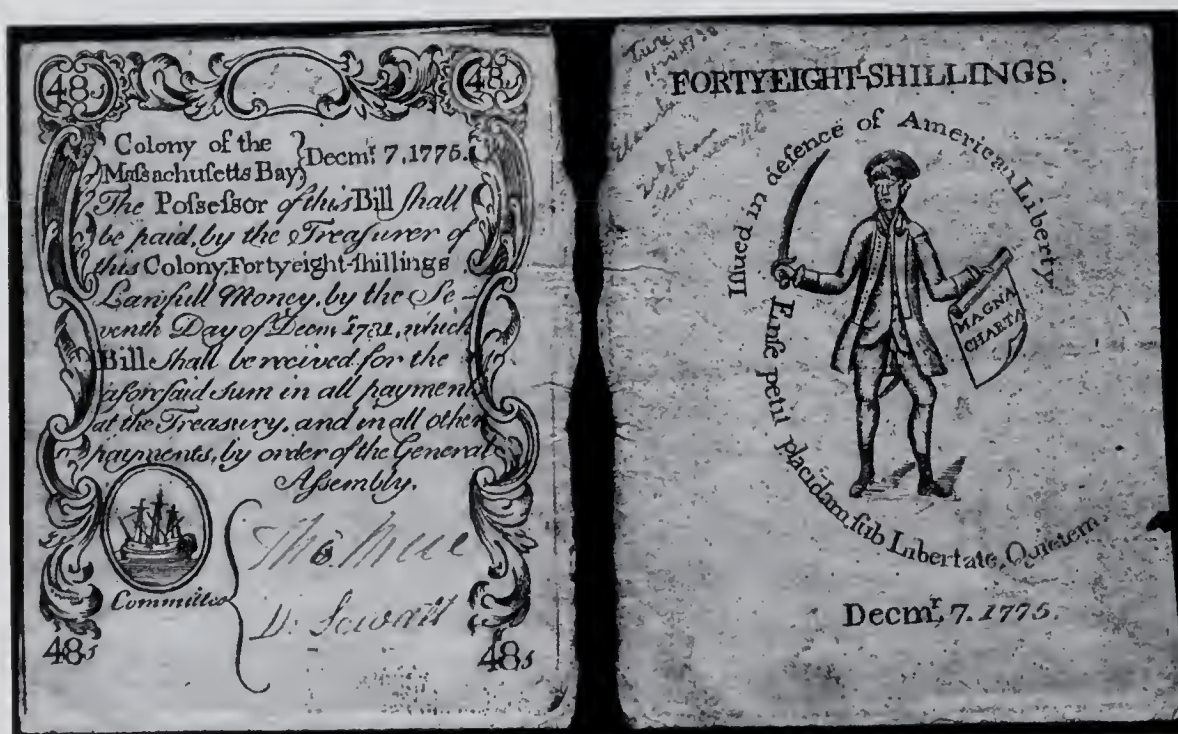 48s 48s
Colony of the
Maſsachuſetts Bay } Decmr. 7, 1775.
The Poſseſsor of this Bill ſhall
be paid, by the Treaſurer of
this Colony, Forty eight-ſhillings
Lawfull Money, by the Se-
venth Day of Decmr. 1781, which
Bill ſhall be recived for the
aforſaid sum in all payments
at the Treasury, and in all other
payments, by order of the General
Aſsembly.
Committee
D. Sewall
48s 48s
FORTYEIGHT-SHILLINGS.
Iſsued in defence of American Liberty.
Enſe petit placidam, ſub Libertate, Quietem
MAGNA
CHARTA
Decmr. 7. 1775.